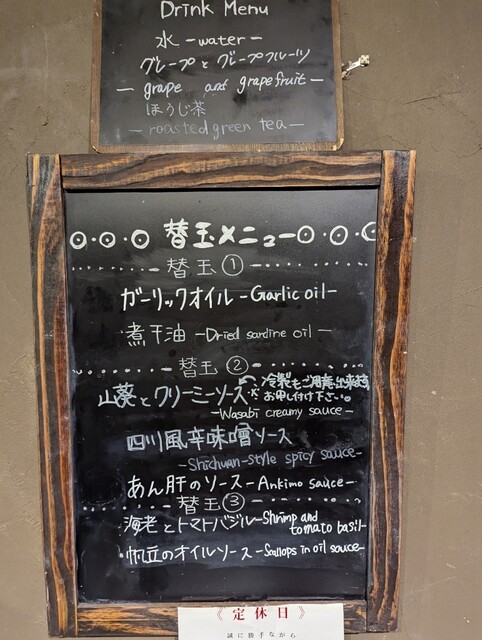 Drink Menu
水 -water-
グレープとグレープフルーツ
- grape and grapefruit -
ほうじ茶
- roasted green tea -
替玉メニュー
替玉①
ガーリックオイル -Garlic oil-
煮干油 -Dried sardine oil-
替玉②
山葵とクリーミーソース ※冷製もご用意出来ます
お申し付け下さい。
-Wasabi creamy sauce-
四川風辛味噌ソース
-Shichuan-style spicy sauce-
あん肝のソース -Ankimo sauce-
替玉③
海老とトマトバジル -Shrimp and
tomato basil-
帆立のオイルソース -Scallops in oil sauce-
《定休日》
誠に勝手ながら